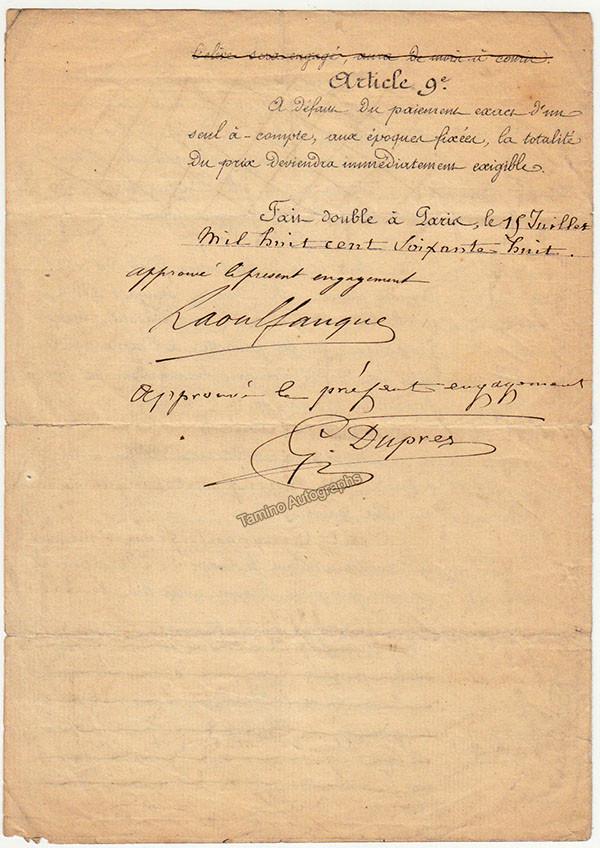 l'élève sera engagé, aura de mois à courir.
Article 9e
A défaut du paiement exact d'un
seul à-compte, aux époques fixées, la totalité
du prix deviendra immédiatement exigible.
Fait double à Paris, le 15 Juillet
Mil huit cent Soixante huit.
approuvé le présent engagement
Raoul
Approuvé le présent engagement
G. Duprez
Tamino Autographs